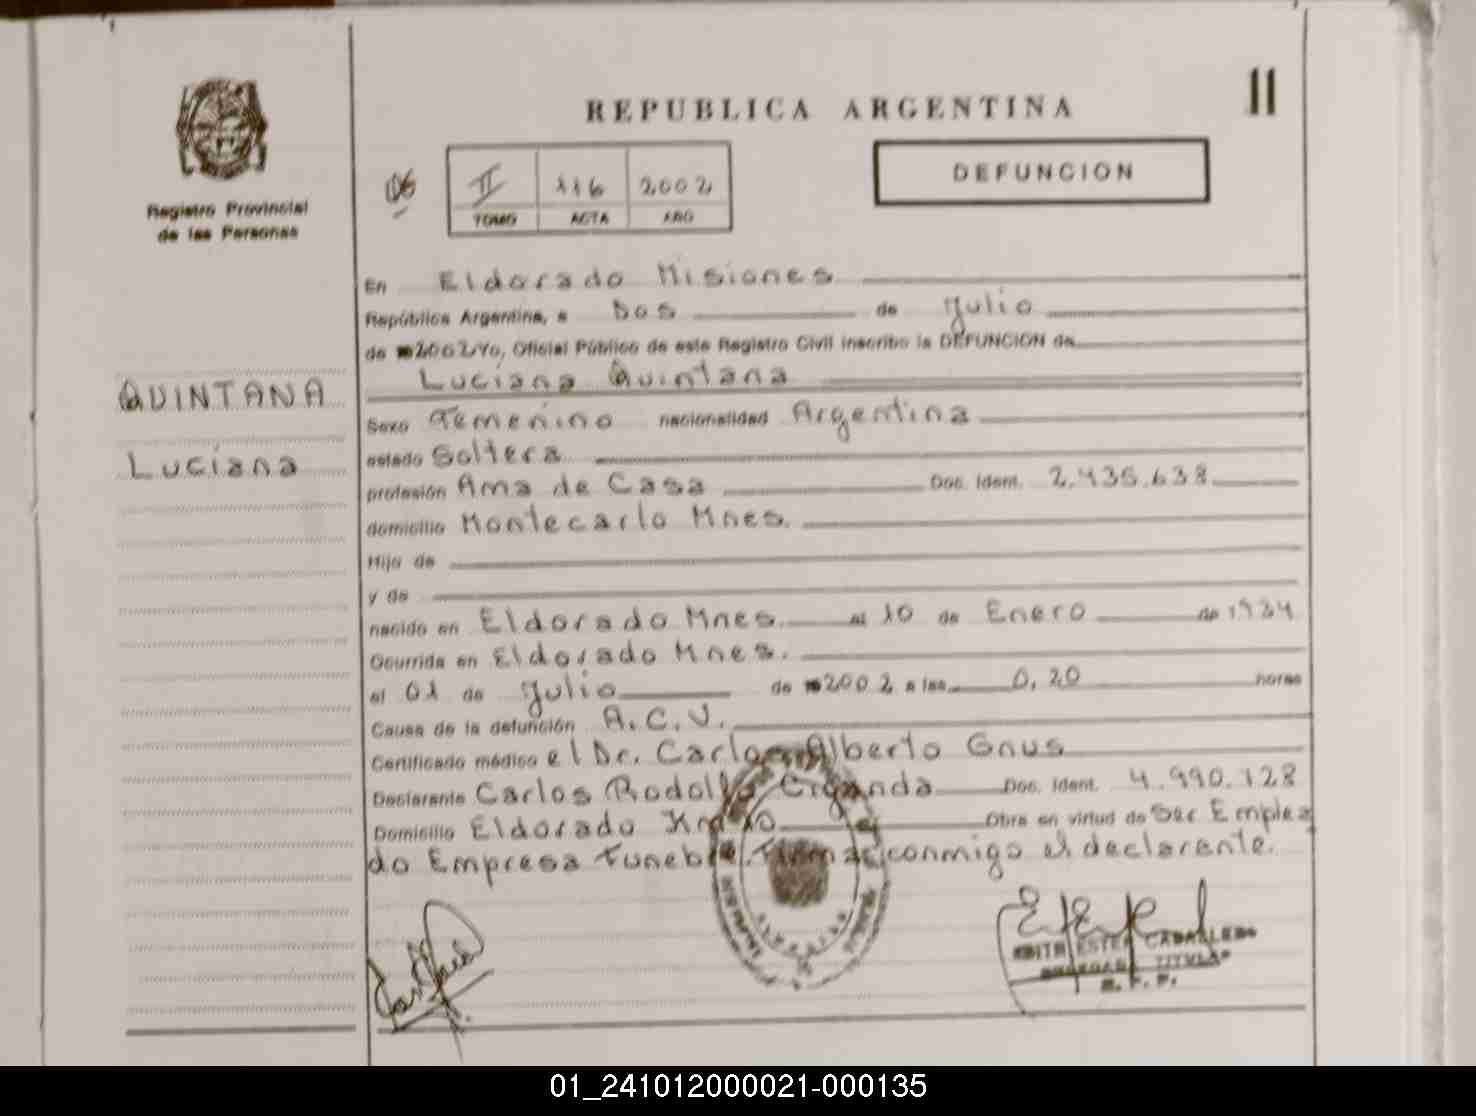 11
REPUBLICA ARGENTINA
DEFUNCION
06
II 116 2002
TOMO ACTA AÑO
Registro Provincial
de las Personas
QUINTANA
Luciana
En Eldorado Misiones
República Argentina, a Dos de Julio
de 2002 Yo, Oficial Público de este Registro Civil inscribo la DEFUNCION de
Luciana Quintana
Sexo Femenino nacionalidad Argentina
estado Soltera
profesión Ama de Casa Doc. Ident. 2.435.638
domicilio Montecarlo Mnes.
Hijo de
y de
nacido en Eldorado Mnes. el 10 de Enero de 1934
Ocurrida en Eldorado Mnes.
el 01 de Julio de 2002 a las 0,20 horas
Causa de la defunción A.C.V.
Certificado médico el Dr. Carlos Alberto Gnus
Declarante Carlos Rodolfo Ciganda Doc. Ident. 4.990.128
Domicilio Eldorado Km 10 Obra en virtud de Ser Emplea
do Empresa Funebre. Firma conmigo el declarante.
EDITH ESTER CABALLERO
TITULAR
R. P. P.
01_241012000021-000135